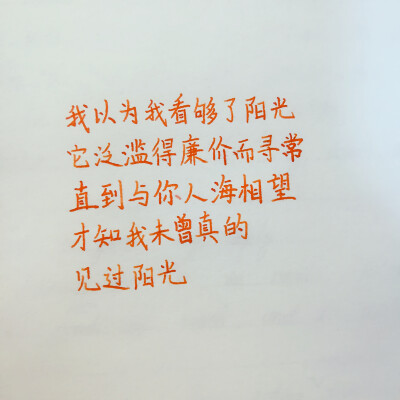 我以为我看够了阳光
它泛滥得廉价而寻常
直到与你人海相望
才知我未曾真的
见过阳光